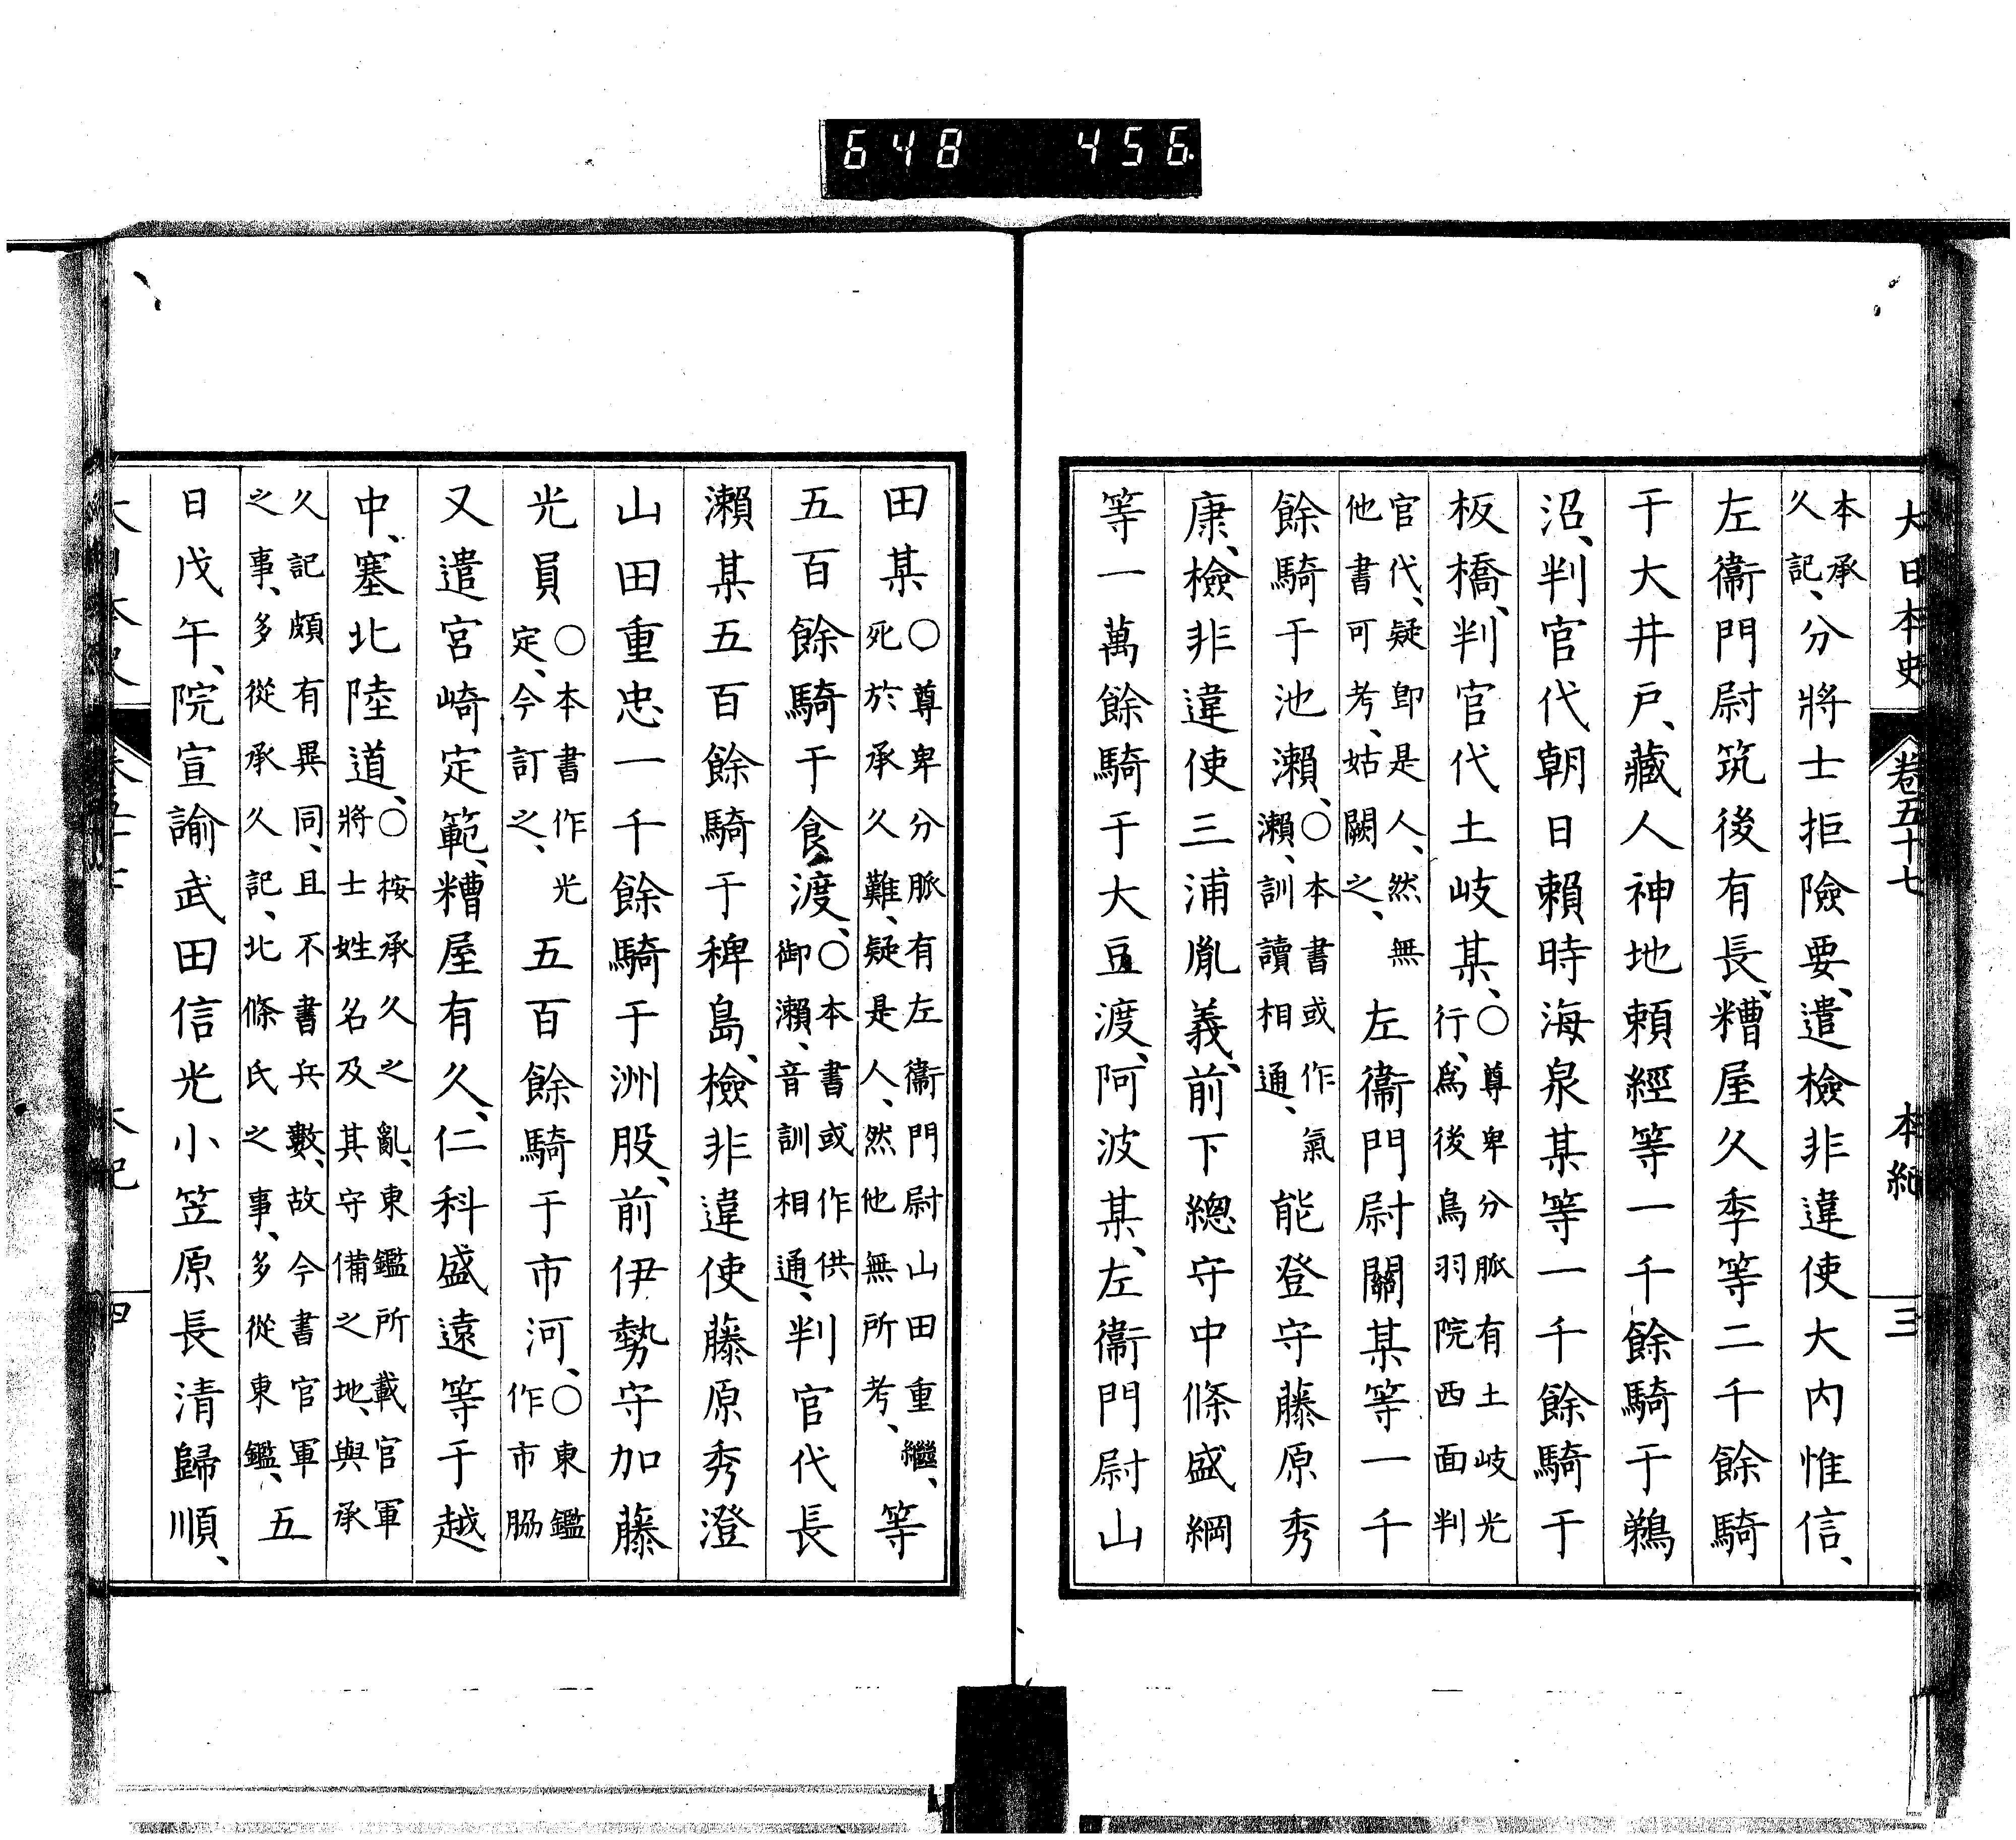 648 456
大日本史 卷五十七 本紀 三
本承久記、分將士拒險要、遣檢非違使大内惟信、
左衞門尉筑後有長、糟屋久季等二千餘騎
于大井戸、藏人神地頼經等一千餘騎于鵜
沼、判官代朝日頼時海泉某等一千餘騎于
板橋、判官代土岐某、○尊卑分脈有土岐光行、爲後鳥羽院西面判
官代、疑卽是人、然無他書可考、姑闕之、左衞門尉關某等一千
餘騎于池瀨、○本書或作氣瀨、訓讀相通、能登守藤原秀
康、檢非違使三浦胤義、前下總守中條盛綱
等一萬餘騎于大豆渡、阿波某、左衞門尉山
田某○尊卑分脈有左衞門尉山田重繼、死於承久難、疑是人、然他無所考、等
五百餘騎于食渡、○本書或作供御瀨、音訓相通、判官代長
瀨某五百餘騎于稗島、檢非違使藤原秀澄
山田重忠一千餘騎于洲股、前伊勢守加藤
光員○本書作光定、今訂之、五百餘騎于市河、○東鑑作市脇
又遣宮崎定範、糟屋有久、仁科盛遠等于越
中、塞北陸道、○桉承久之亂、東鑑所載官軍將士姓名及其守備之地、與承
久記頗有異同、且不書兵數、故今書官軍之事、多從承久記、北條氏之事、多從東鑑、五
日戊午、院宣諭武田信光小笠原長清歸順、